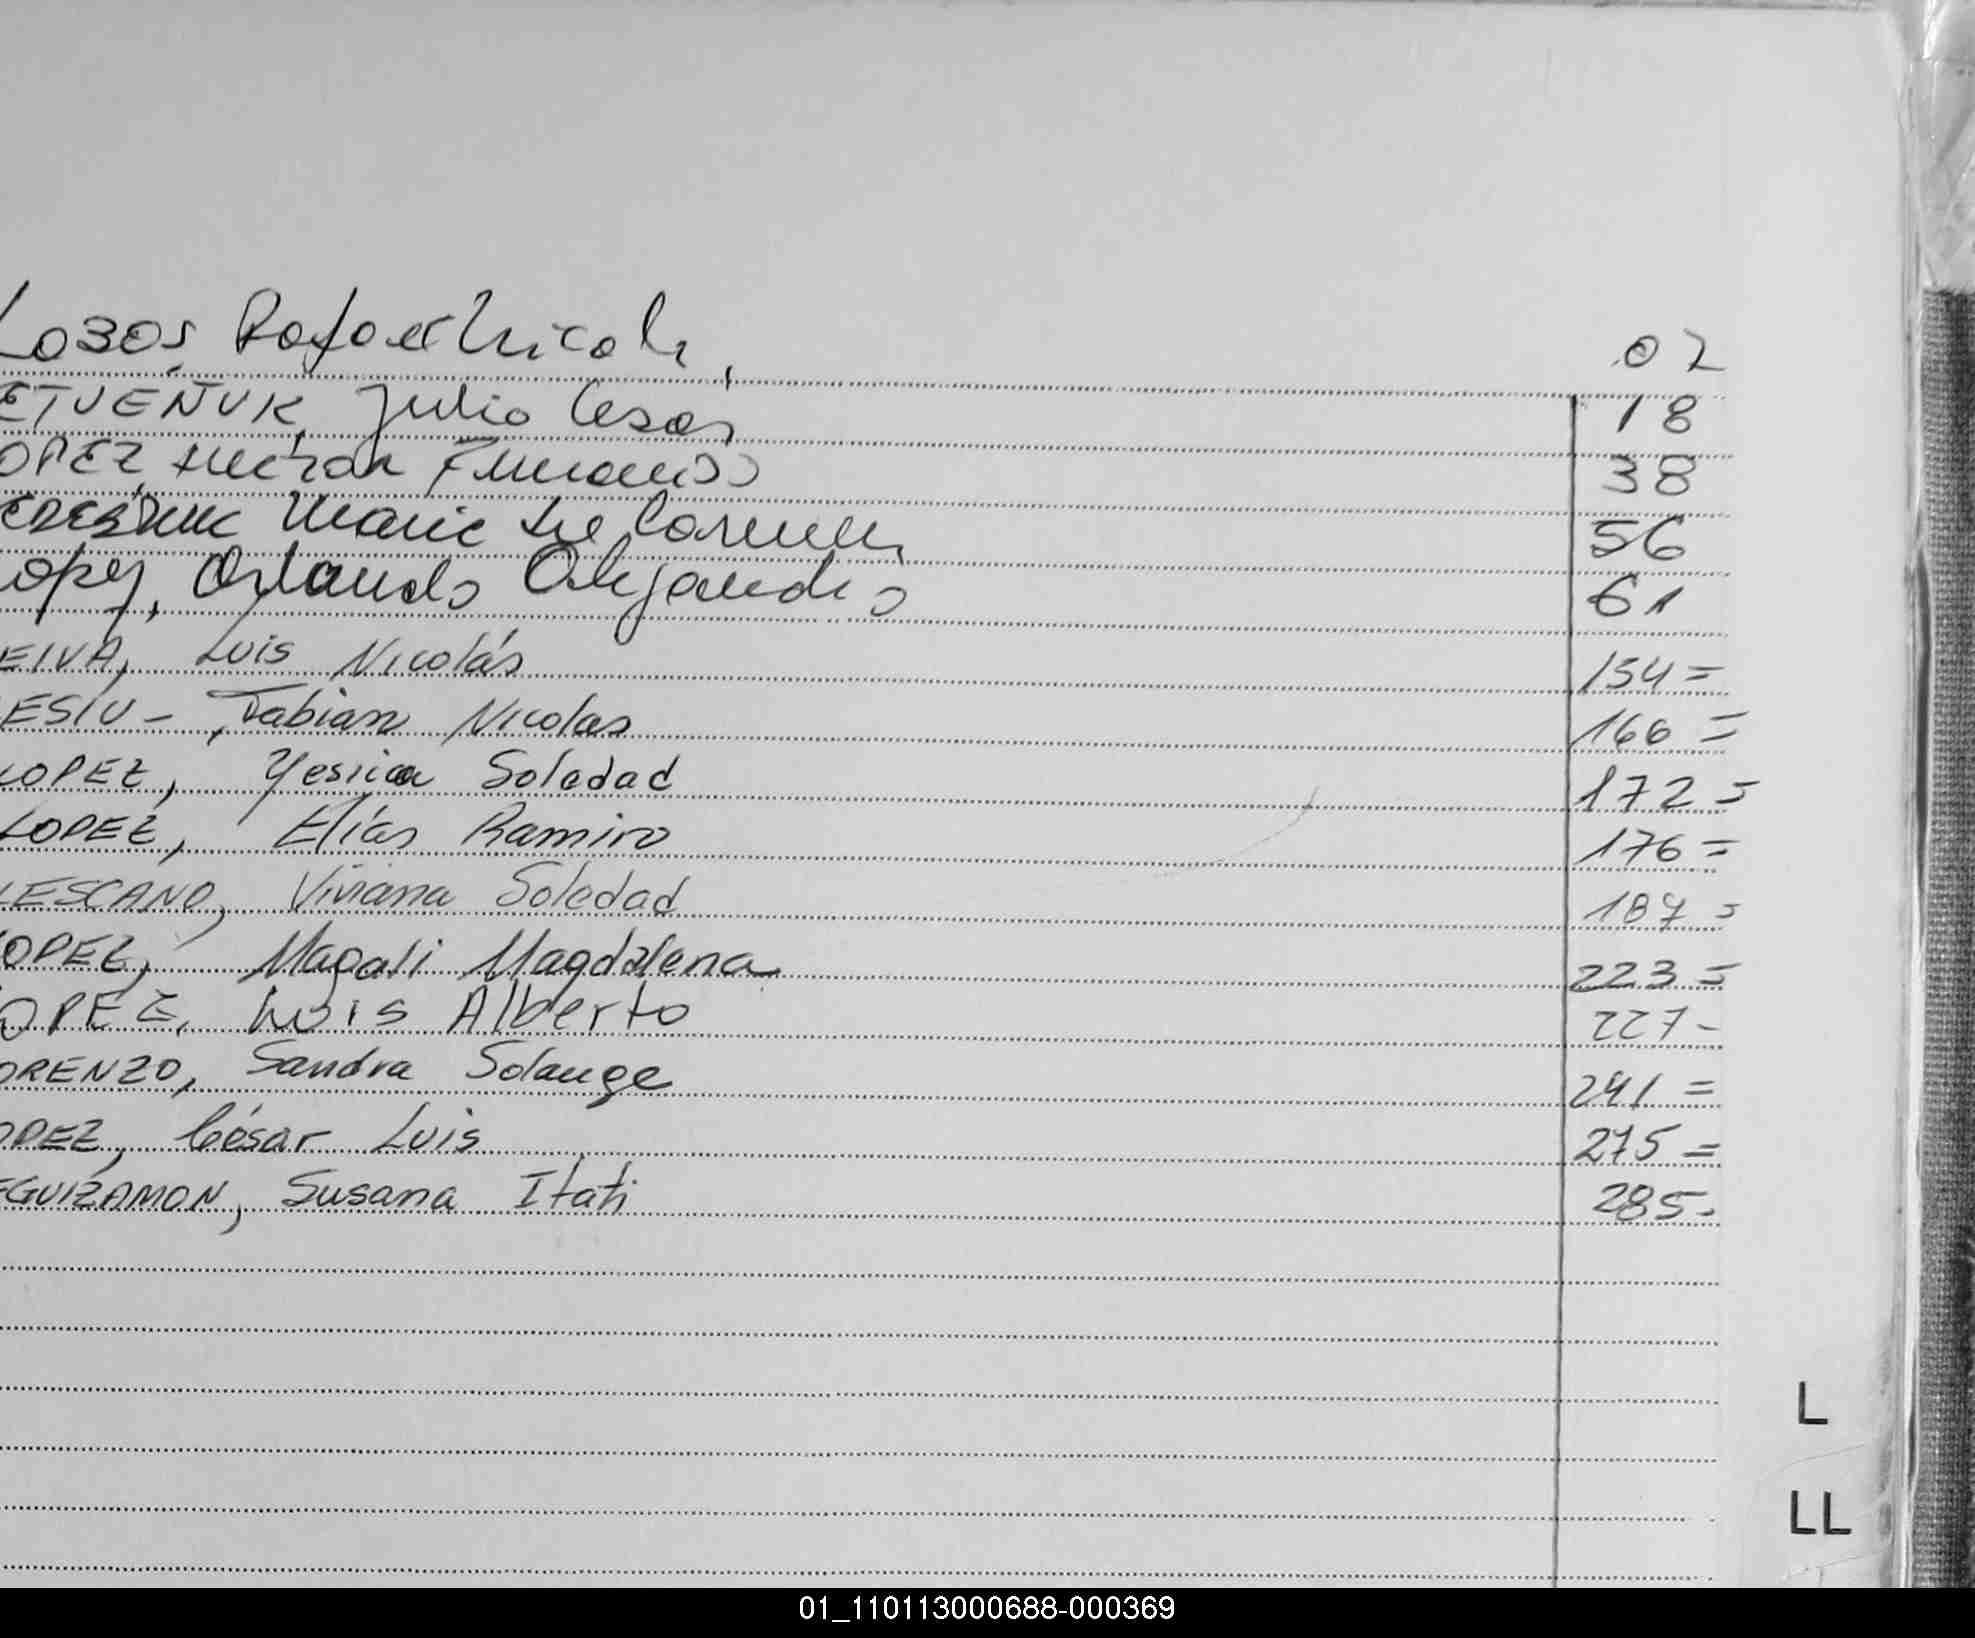 Lobos, Rafael Nicolas 02
ETVEÑUK, Julio Cesar 18
OPEZ Hector 38
Maria del Carmen 56
opez, Orlando Alejandro 61
EIVA, Luis Nicolás 154=
ESIU-, Fabian Nicolas 166=
LOPEZ, Yesica Soledad 172=
LOPEZ, Elías Ramiro 176=
LESCANO, Viviana Soledad 187=
OPEZ, Magali Magdalena 223=
OPEZ, Luis Alberto 227-
ORENZO, Sandra Solange 241=
OPEZ, César Luis 275=
EGUIZAMON, Susana Itati 285-
L
LL
01_110113000688-000369